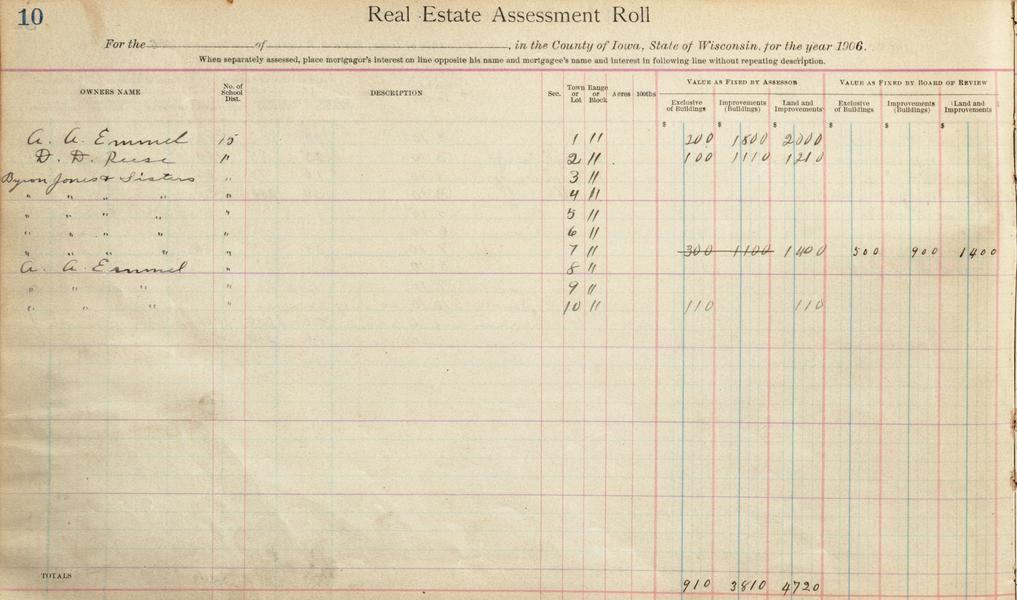 10
Real Estate Assessment Roll
For the of , in the County of Iowa, State of Wisconsin, for the year 1906.
When separately assessed, place mortgagor's interest on line opposite his name and mortgagee's name and interest in following line without repeating description.
OWNERS NAME No. of School Dist. DESCRIPTION Sec. Town or Lot Range or Block Acres 100ths VALUE AS FIXED BY ASSESSOR VALUE AS FIXED BY BOARD OF REVIEW
Exclusive of Buildings Improvements (Buildings) Land and Improvements Exclusive of Buildings Improvements (Buildings) Land and Improvements
$ $ $ $ $ $
A. A. Emmel 15 1 11 200 1800 2000
D. D. Reese " 2 11 100 1110 1210
Byron Jones & Sisters " 3 11
" " " " " 4 11
" " " " " 5 11
" " " " " 6 11
" " " " " 7 11 300 1100 1400 500 900 1400
A. A. Emmel " 8 11
" " " " 9 11
" " " " 10 11 110 110
TOTALS 910 3810 4720